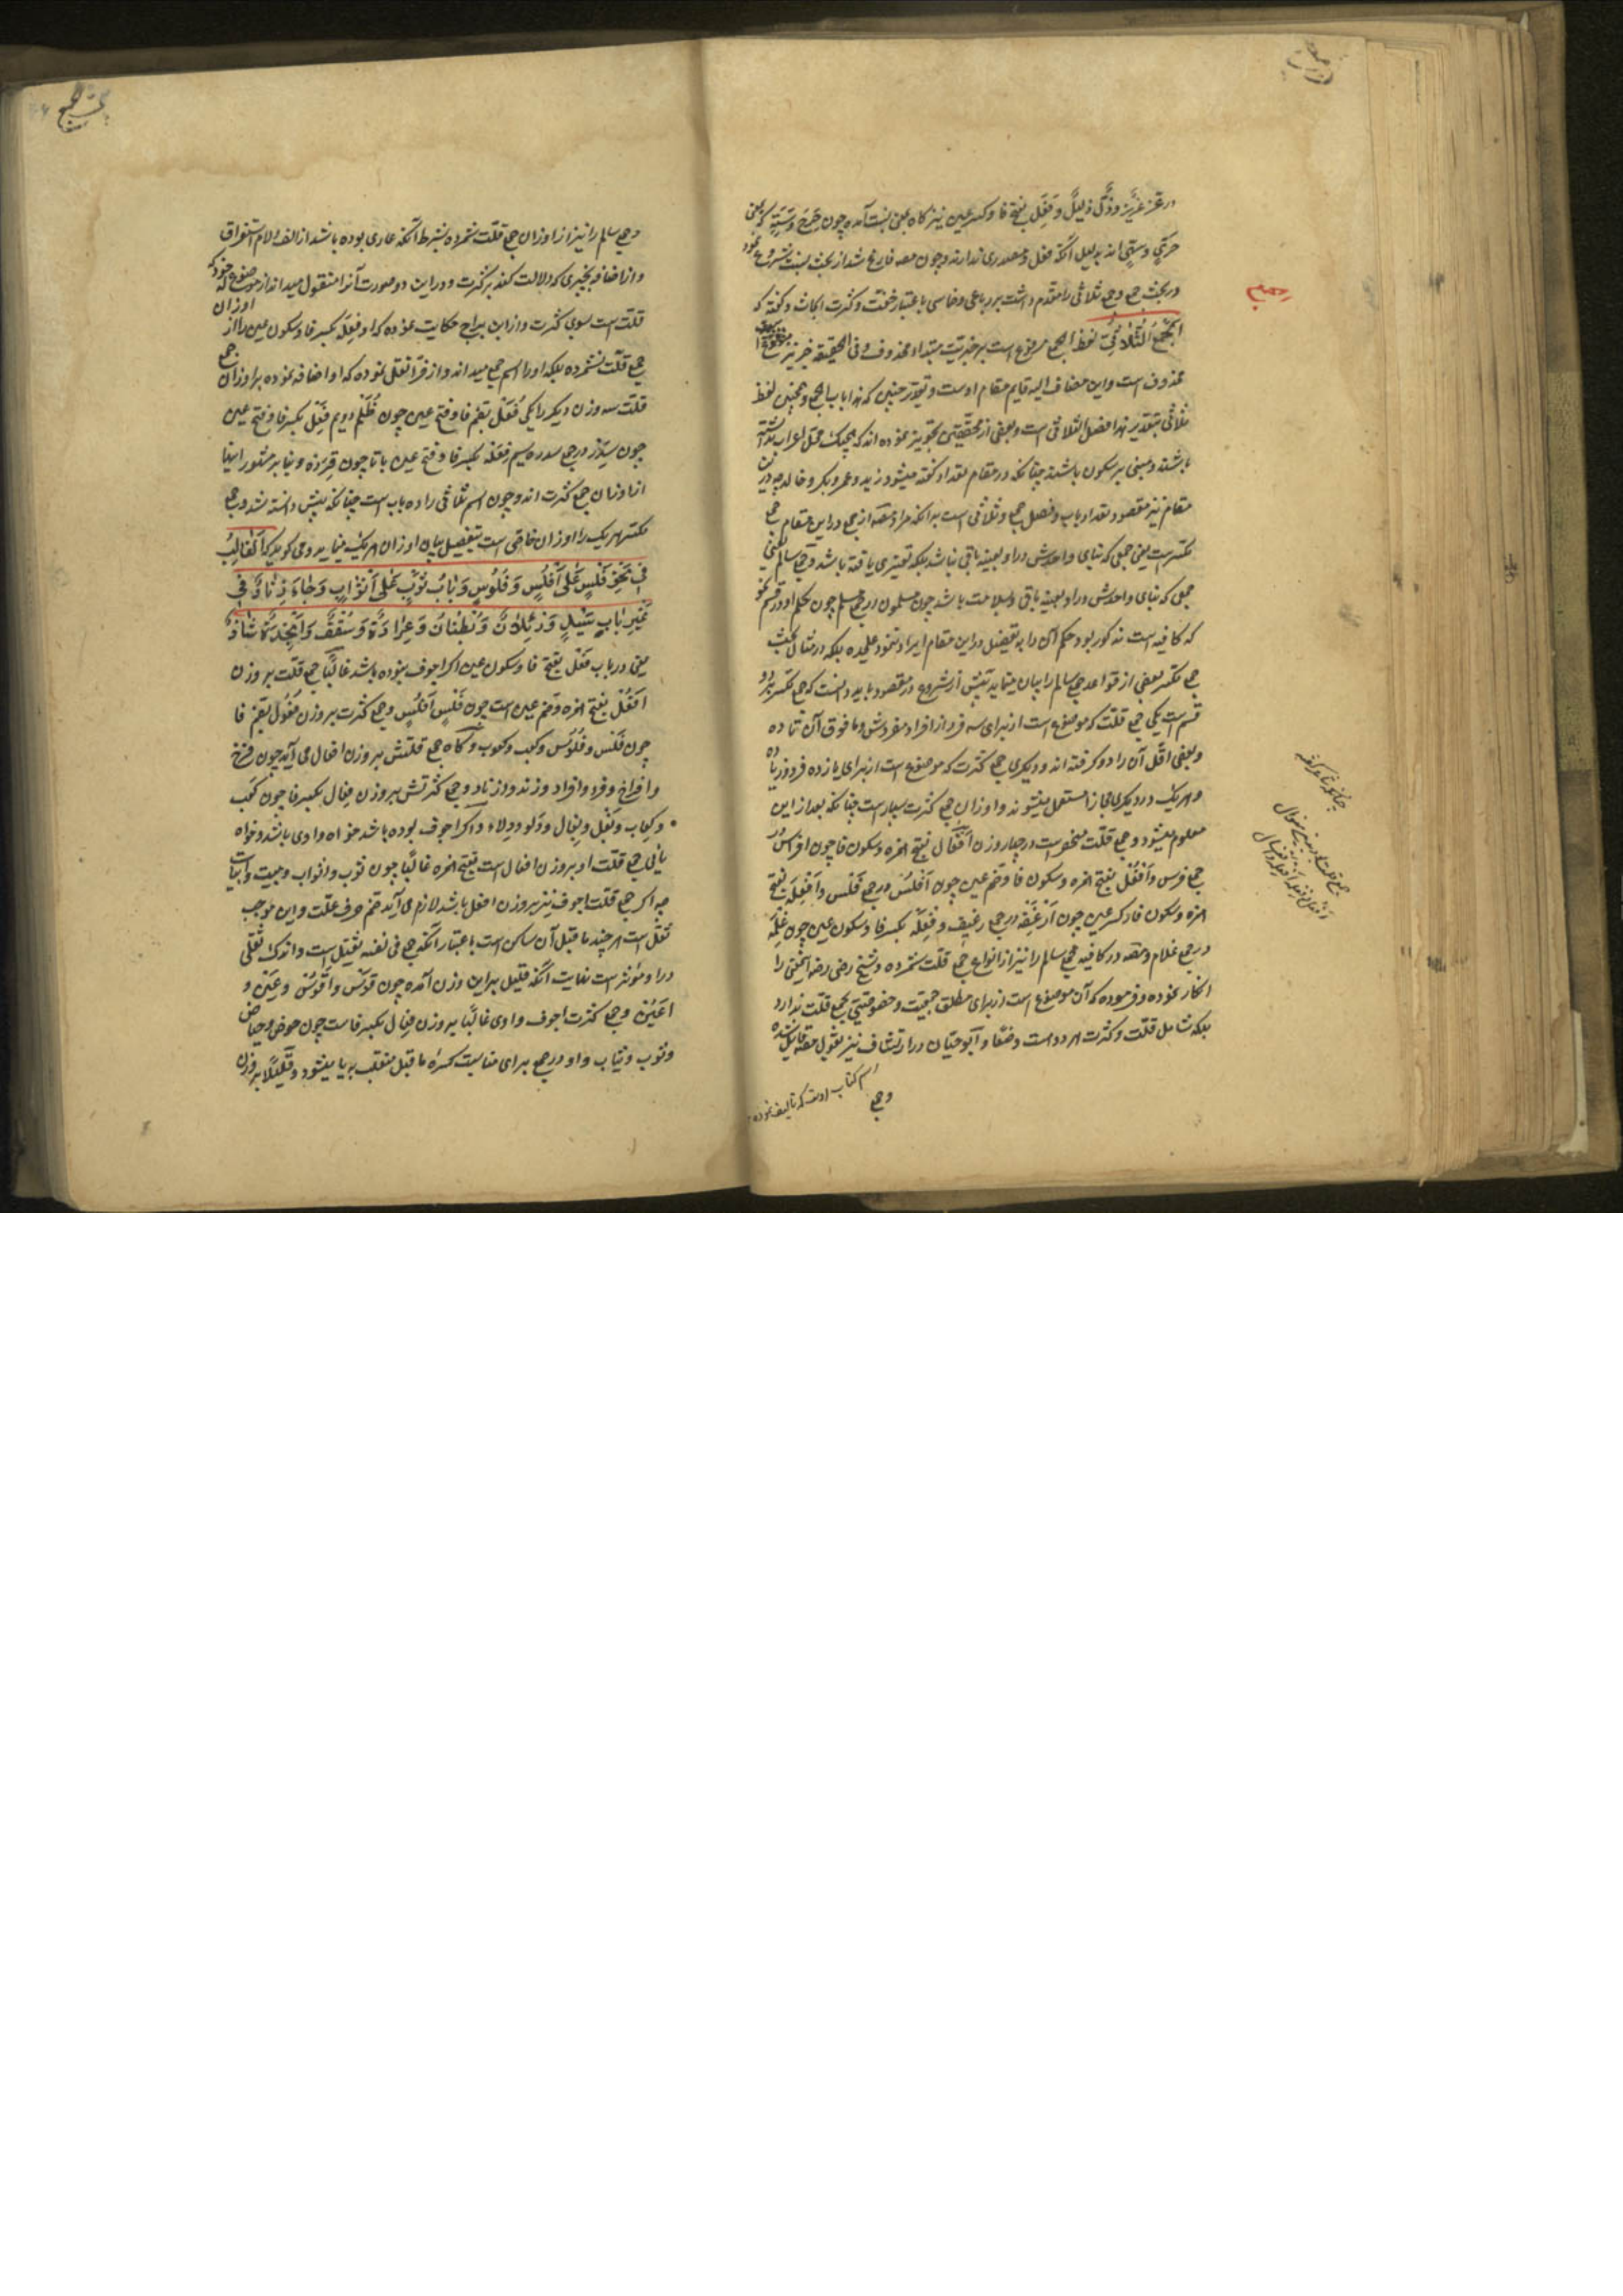 در عَزّ عَزیزٌ و ذَلّ ذلیلٌ و فَعِل بفتح فا و کسر عین نیز کاه بمعنی نسبت آمده چون حَرِحٌ و سَتِهٌ که بمعنی
حرحیّ و ستهیّ اند بدلیل آنکه فعل و مصدری ندارند و چون مصه فارغ شد از بحث نسبت شروع نمود
در بحث جمع و جمع ثلاثی را مقدم داشت بر رباعی و خماسی باعتبار خفت و کثرت ابحاث و کفته که
الجَمْعُ الثُّلاثِیّ لفظ الجمع مرفوع است بر خبریّت مبتداء محذوف و فی الحقیقه خبر نیز
محذوف است و این مضاف الیه قایم مقام اوست و تقدیر چنین که هذا باب الجمع و همچنین لفظ
ثلاثی بتقدیر هذا فصل الثلاثی است و بعضی از محققین تجویز نموده اند که هیچیک محل اعراب نداشته
باشند و مبنی بر سکون باشند چنانکه در مقام تعداد کفته میشود زید و عمرو و بکر و خالد چه در این
مقام نیز مقصود تعداد باب و فصل جمع و ثلاثی است بدانکه مراد مصه از جمع در این مقام جمع
مکسر است یعنی جمعی که بنای واحدش در او بعینه باقی نباشد بلکه تغییری یافته باشد و جمع سالم یعنی
جمعی که بنای واحدش در او بعینه باقی و سلامت باشد چون مسلمون در جمع مسلم چون حکم او در قسم نحو
که کافیه است مذکور بود حکم آن را بتفصیل در این مقام ایراد ننمود علیحده بلکه در مثال بحث
جمع مکسر بعضی از قواعد جمع سالم را بیان مینماید پیش از شروع در مقصود باید دانست که جمع مکسر بر دو
قسم است یکی جمع قلت که موضوع است از برای سه فرد از افراد مفردش و ما فوق آن تا ده
و بعضی اقل آن را دو کرفته اند و دیکری جمع کثرت که موضوع است از برای یازده فرد و زیاده
و هر یک در دیکری مجازا مستعمل میشوند و اوزان جمع کثرت بسیار است چنانکه بعد از این
معلوم میشود و جمع قلت منحصر است در چهار وزن اَفْعال بفتح همزه و سکون فا چون افراسٌ در
جمع فرس و اَفْعُل بفتح همزه و سکون فا و ضم عین چون اَفْلُسٌ در جمع فَلْس و اَفْعِلَه بفتح
همزه و سکون فا و کسر عین چون اَرْغِفَه در جمع رغیف و فِعْلَه بکسر فا و سکون عین چون غِلْمَه
در جمع غلام و مصه در کافیه جمع سالم را نیز از انواع جمع قلت شمرده و شیخ رضی رضه اینمعنی را
انکار نموده و فرموده که آن موضوع است از برای مطلق جمعیّت و خصوصیّتی بجمع قلت ندارد
بلکه شامل قلّت و کثرت هر دو است وضعًا و ابو حیّان در ارتشاف نیز بقول مصه قایل شده
اسم کتاب اوست که تالیف نموده
و جمع
جمع
و جمع سالم را نیز از اوزان جمع قلّت شمرده بشرط آنکه عاری بوده باشد از الف و لام استغراق
و از اضافه بچیزی که دلالت کند بر کثرت و در این دو صورت آنرا منقول میداند از موضوع له خود که
قلّت است بسوی کثرت و از ابن سراج حکایت نموده که او فِعْلَه بکسر فا و سکون عین را از اوزان
جمع قلّت نشمرده بلکه او را اسم جمع میداند و از فرّا نقل نموده که او اضافه نموده بر اوزان جمع
قلّت سه وزن دیکر را یکی فُعَل بضم فا و فتح عین چون ظُلَم دویم فِعَل بکسر فا و فتح عین
چون سِدَر در جمع سدره سیم فِعَلَه بکسر فا و فتح عین با تا چون قِرَدَه و بنا بر مشهور اینها
از اوزان جمع کثرت اند و چون اسم ثلاثی را ده باب است چنانکه پیش دانسته شد و جمع
مکسر هر یک را اوزان خاصی است بتفصیل بیان اوزان هر یک مینماید و می کوید که اَلْغالِبُ
فی نَحْوِ فَلْسٍ عَلی اَفْلُسٍ وَ فُلُوسٍ وَ بابُ ثَوْبٍ عَلی اَثْوابٍ وَ جاءَ زِنادٌ فی
غَیْرِ بابِ سَیْلٍ وَ رِئْلانٌ وَ بُطْنانٌ وَ غِرَدَةٌ وَ سُقُفٌ وَ اَنْجِدَةٌ شاذٌّ
یعنی در باب فَعْل بفتح فا و سکون عین اکر اجوف نبوده باشد غالبًا جمع قلّت بر وزن
اَفْعُل بفتح همزه و ضم عین است چون فَلْسٍ اَفْلُسٍ و جمع کثرت بر وزن فُعُول بضم فا
چون فَلْس و فُلُوس و کعب و کعوب و کاه جمع قلتش بر وزن افعال می آید چون فرخ
و افراخ و فرد و افراد و زند و ازناد و جمع کثرتش بر وزن فِعال بکسر فا چون کَعْب
و کِعاب و بَغْل و بِغال و دَلو و دِلاء و اکر اجوف بوده باشد خواه واوی باشد و خواه
یائی جمع قلت او بر وزن افعال است بفتح همزه غالبًا چون ثوب و اثواب و بیت و ابیات
چه اکر جمع قلت اجوف نیز بر وزن افعل باشد لازم می آید ضم حرف علّت و این موجب
ثقل است هر چند ما قبل آن ساکن است باعتبار آنکه جمع فی نفسه ثقیل است و اندک ثقلی
در او مؤثر است نهایت آنکه قلیل بر این وزن آمده چون قَوْس و اَقْوُس و عَیْن و
اَعْیُن و جمع کثرت اجوف واوی غالبًا بر وزن فِعال بکسر فا است چون حوض و حیاض
و ثوب و ثیاب و واو در جمع برای مناسبت کسره ما قبل منقلب بیا میشود و قلیلًا بر وزن